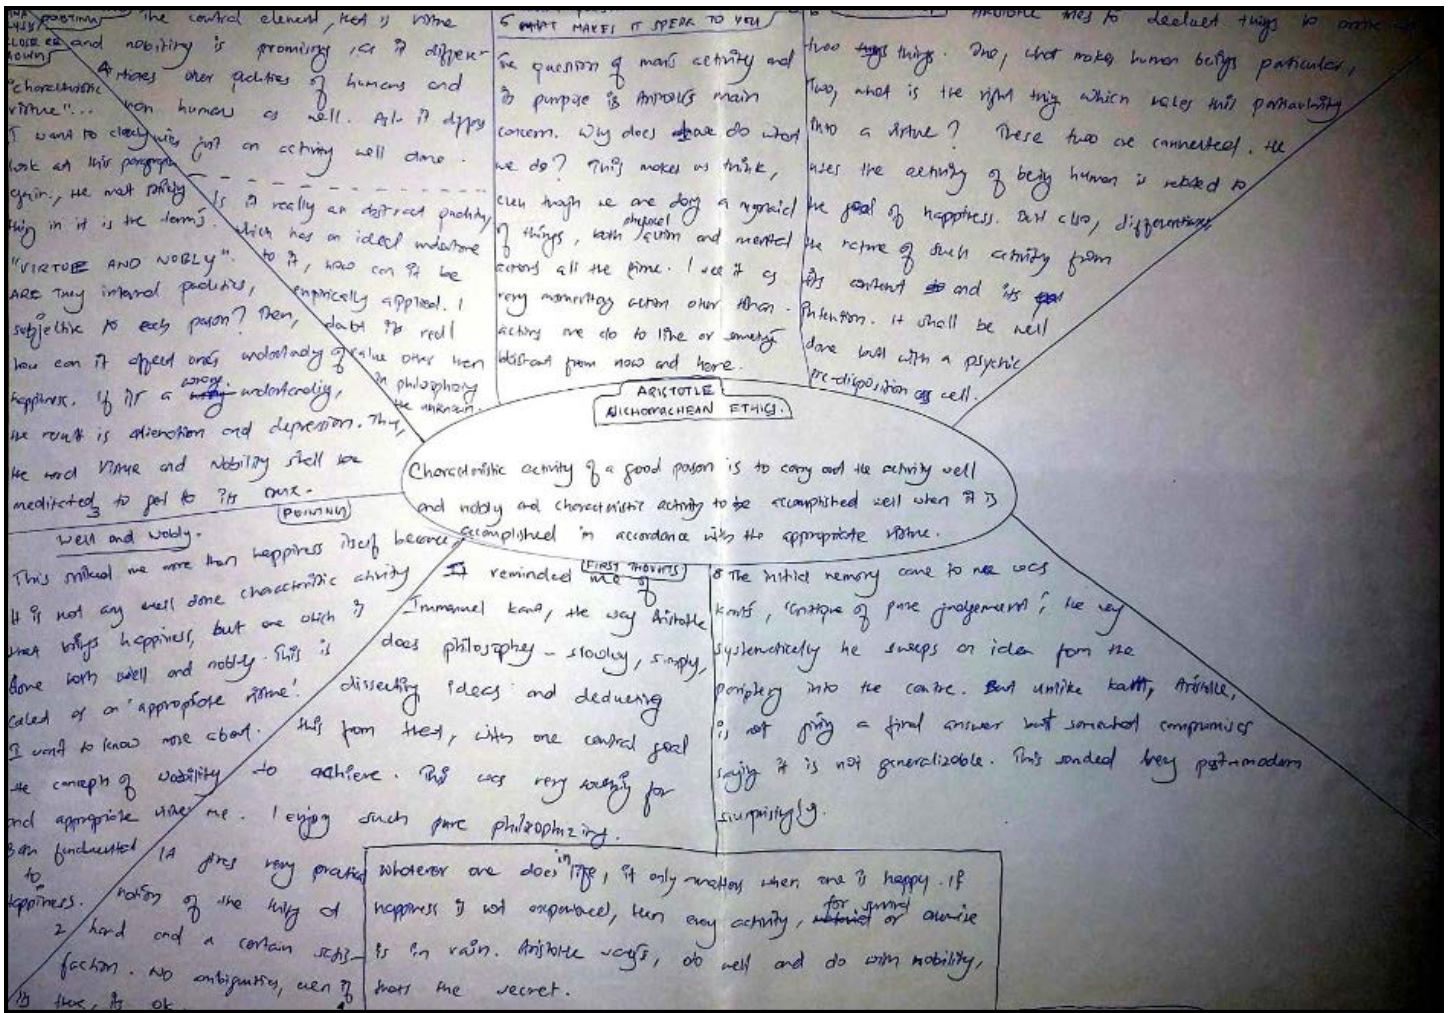 ARISTOTLE
NICHOMACHEAN ETHICS.
Characteristic activity of a good person is to carry out the activity well
and nobly and characteristic activity to be accomplished well when it is
accomplished in accordance with the appropriate virtue.
POINTING
The central element, that is virtue
and nobility is promising, as it differen-
tiates other qualities of humans and
non humans as well. Also it
just an activity well done.
Is it really an abstract quality,
which has an ideal undertone
to it, how can it be
empirically applied. I
doubt its real
value other than
in philosophizing
the unknown.
CLOSER
"characteristic
virtue"...
I want to closely
look at this paragraph
again., the most striking
thing in it is the terms.
"VIRTUE AND NOBLY".
ARE They internal qualities,
subjective to each person? Then,
how can it affect one's understanding of
happiness. If its a wrong understanding,
the result is alienation and depression. Thus,
the word virtue and Nobility shall be
meditated to get to its
5 WHAT MAKES IT SPEAK TO YOU
The question of man's activity and
its purpose is Aristotle's main
concern. Why does we do what
we do? This makes us think,
even though we are doing a myriad
of things, both physical action and mental
actions all the time. I see it as
very momentary action other than
actions we do to live or something
abstract from now and here.
ARISTOTLE tries to deduct things to
two things. One, what makes human beings particular,
Two, what is the right thing which makes this particularity
into a virtue? These two are connected. He
uses the activity of being human is related to
the goal of happiness. But also, differentiates
the nature of such activity from
its content and its
intention. It shall be well
done but with a psychic
pre-disposition as well.
3
POINTING
Well and Nobly.
This striked me more than happiness itself because,
It is not any well done characteristic activity
that brings happiness, but one which is
done both well and nobly. This is
called as an 'appropriate virtue'.
I want to know more about
the concept of Nobility
and appropriate virtue
Both fundamental
to
happiness.
2
FIRST THOUGHTS
It reminded me of
Immanuel Kant, the way Aristotle
does philosophy - slowly, simply,
dissecting ideas and deducing
this from that, with one central goal
to achieve. This was very soothing for
me. I enjoy such pure philosophizing.
1A gives very practical
notion of the thing at
hand and a certain satis-
faction. No ambiguities, even if
its there, its ok.
8 The initial memory came to me was
Kant's, 'Critique of pure judgement', the way
systematically he sweeps an idea from the
periphery into the centre. But unlike Kant, Aristotle,
is not giving a final answer but somewhat compromises
saying it is not generalizable. This sonded very post-modern
surprisingly.
Whatever one does in life, it only matters when one is happy. If
happiness is not experienced, then every activity, for survival or otherwise
is in vain. Aristotle says, do well and do with nobility,
thats the secret.